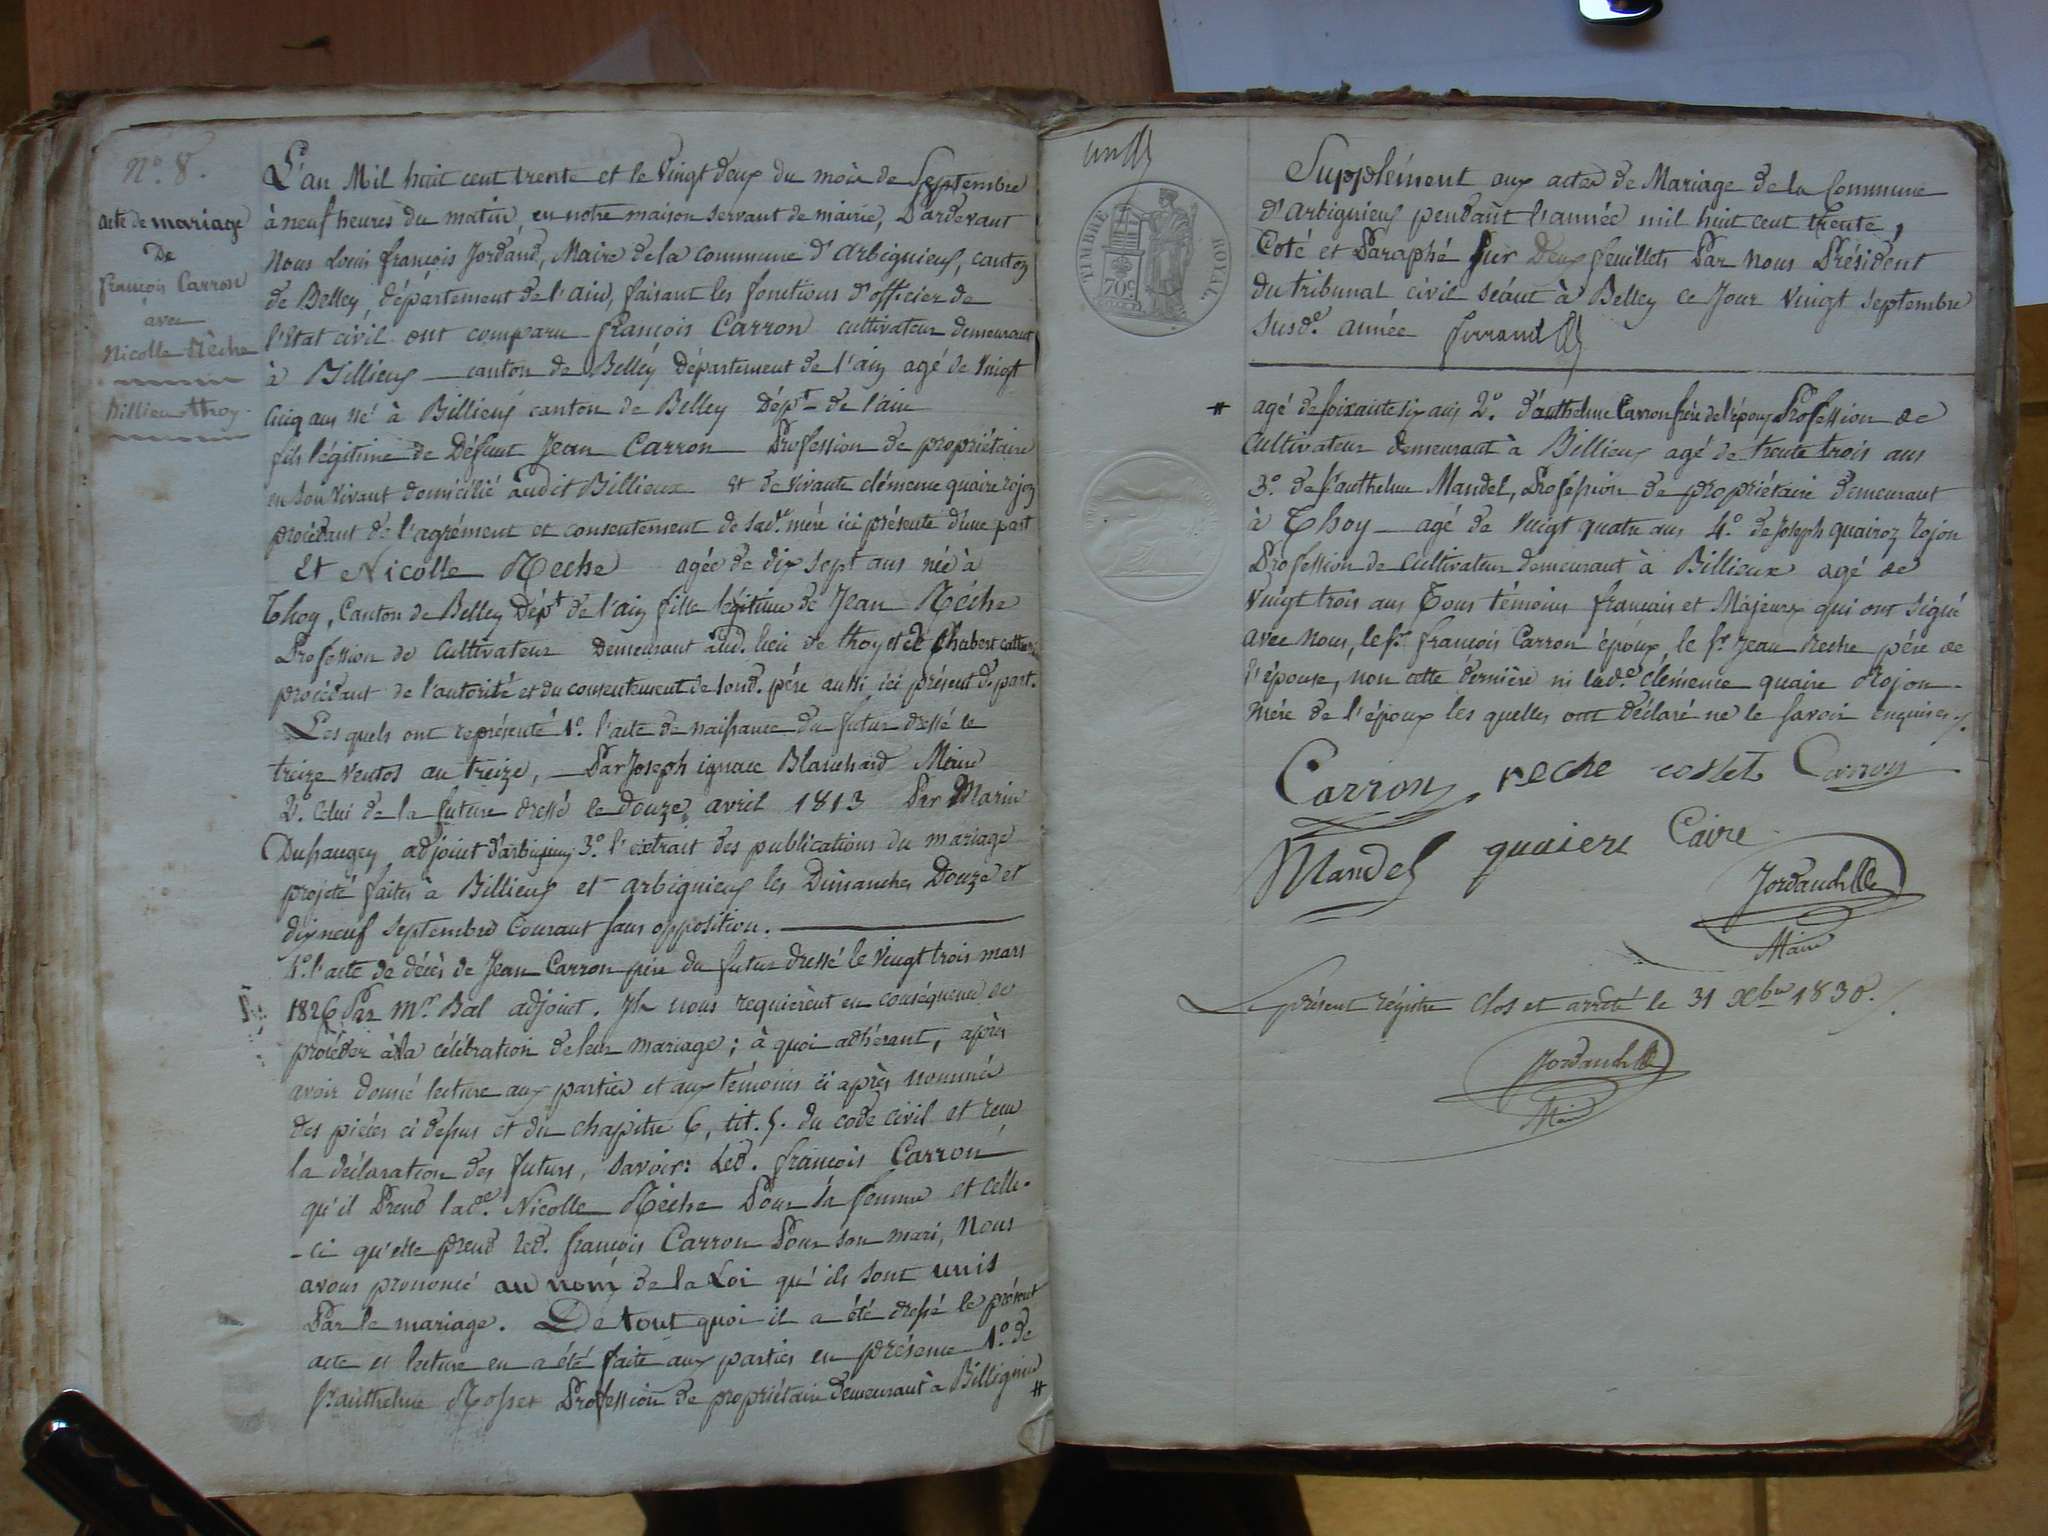 N.° 8.
acte de mariage
De
françois Carron
avec
Nicolle Rêche
Billieu thoy.
L'an Mil huit cent trente et le Vingt deux du mois de Septembre
à neuf heures du matin, en notre maison servant de mairie, Pardevant
Nous Louis françois Jordand, Maire de la commune d'Arbignieux, canton
de Belley, département de l'ain, faisant les fonctions d'officier de
l'Etat civil ont comparu françois Carron cultivateur demeurant
à Billieux canton de Belley Département de l'ain agé de Vingt
cinq ans né à Billieux canton de Belley Dép.t de l'ain
fils légitime de Défunt Jean Carron Profession de propriétaire
en son vivant domicilié audit Billieux et de vivante clémence quaire rojon
procédant de l'agrément et consentement de sad.e mère ici présente d'une part
Et Nicolle Reche agée de dix sept ans née à
Thoy, Canton de Belley Dép.t de l'ain fille légitime de Jean Rêche
Profession de Cultivateur Demeurant aud. lieu de thoy et de Chabert
procédant de l'autorité et du consentement de sond. père aussi ici présent d. part.
Les quels ont représenté 1.° l'acte de naissance du futur dressé le
treize Ventos an treize, Par Joseph ignace Blanchard Maire
2.° Celui de la future dressé le douze avril 1813 Par Marin
Dufaugey adjoint d'arbignieux 3.° l'extrait des publications du mariage
projeté faites à Billieux et arbignieux les Dimanches Douze et
dix neuf Septembre Courant sans opposition.
4.° l'acte de décès de Jean Carron père du futur dressé le Vingt trois mars
1826 Par M.r Bal adjoint. Ils nous requièrent en conséquence de
procéder à la célébration de leur mariage; à quoi adhérant, après
avoir donné lecture aux parties et aux témoins ci après nommés
des pièces ci dessus et du chapitre 6, tit. 5. du code civil et reçu
la déclaration des futurs, savoir: Led. françois Carron
qu'il Prend lad.e Nicolle Rêche Pour sa femme et celle-
-ci qu'elle prend led. françois Carron Pour son mari, Nous
avons prononcé au nom de la Loi qu'ils sont unis
Par le mariage. De tout quoi il a été dressé le présent
acte et lecture en a été faite aux parties en présence 1.° de
S.r anthelme Rosset Profession de propriétaire demeurant à Billignin #
TIMBRE ROYAL
70c.
Supplément aux actes de Mariage de la Commune
d'Arbignieux pendant l'année mil huit cent trente,
Coté et Paraphé sur Deux feuillets Par Nous Président
du tribunal civil séant à Belley ce Jour vingt septembre
susd.e année ferrand
# agé de soixante six ans 2.° d'anthelme Carron frère de l'époux Profession de
Cultivateur demeurant à Billieux agé de trente trois ans
3.° de S.r anthelme Mandel, Profession de propriétaire demeurant
à Thoy agé de Vingt quatre ans 4.° de Joseph quairoz rojon
Profession de Cultivateur demeurant à Billieux agé de
Vingt trois ans Tous témoins français et Majeurs qui ont Signé
avec nous, le S.r françois Carron époux, le S.r Jean Reche père de
l'épouse, non cette dernière ni lad.e clémence quaire Rojon
mère de l'époux les quelles ont déclaré ne le savoir enquises
Carron reche rosset Carron
Mandel quaiere Caire
Jordand
Maire
Le présent régistre clos et arrêté le 31 Xbre 1830.
Jordand
Maire